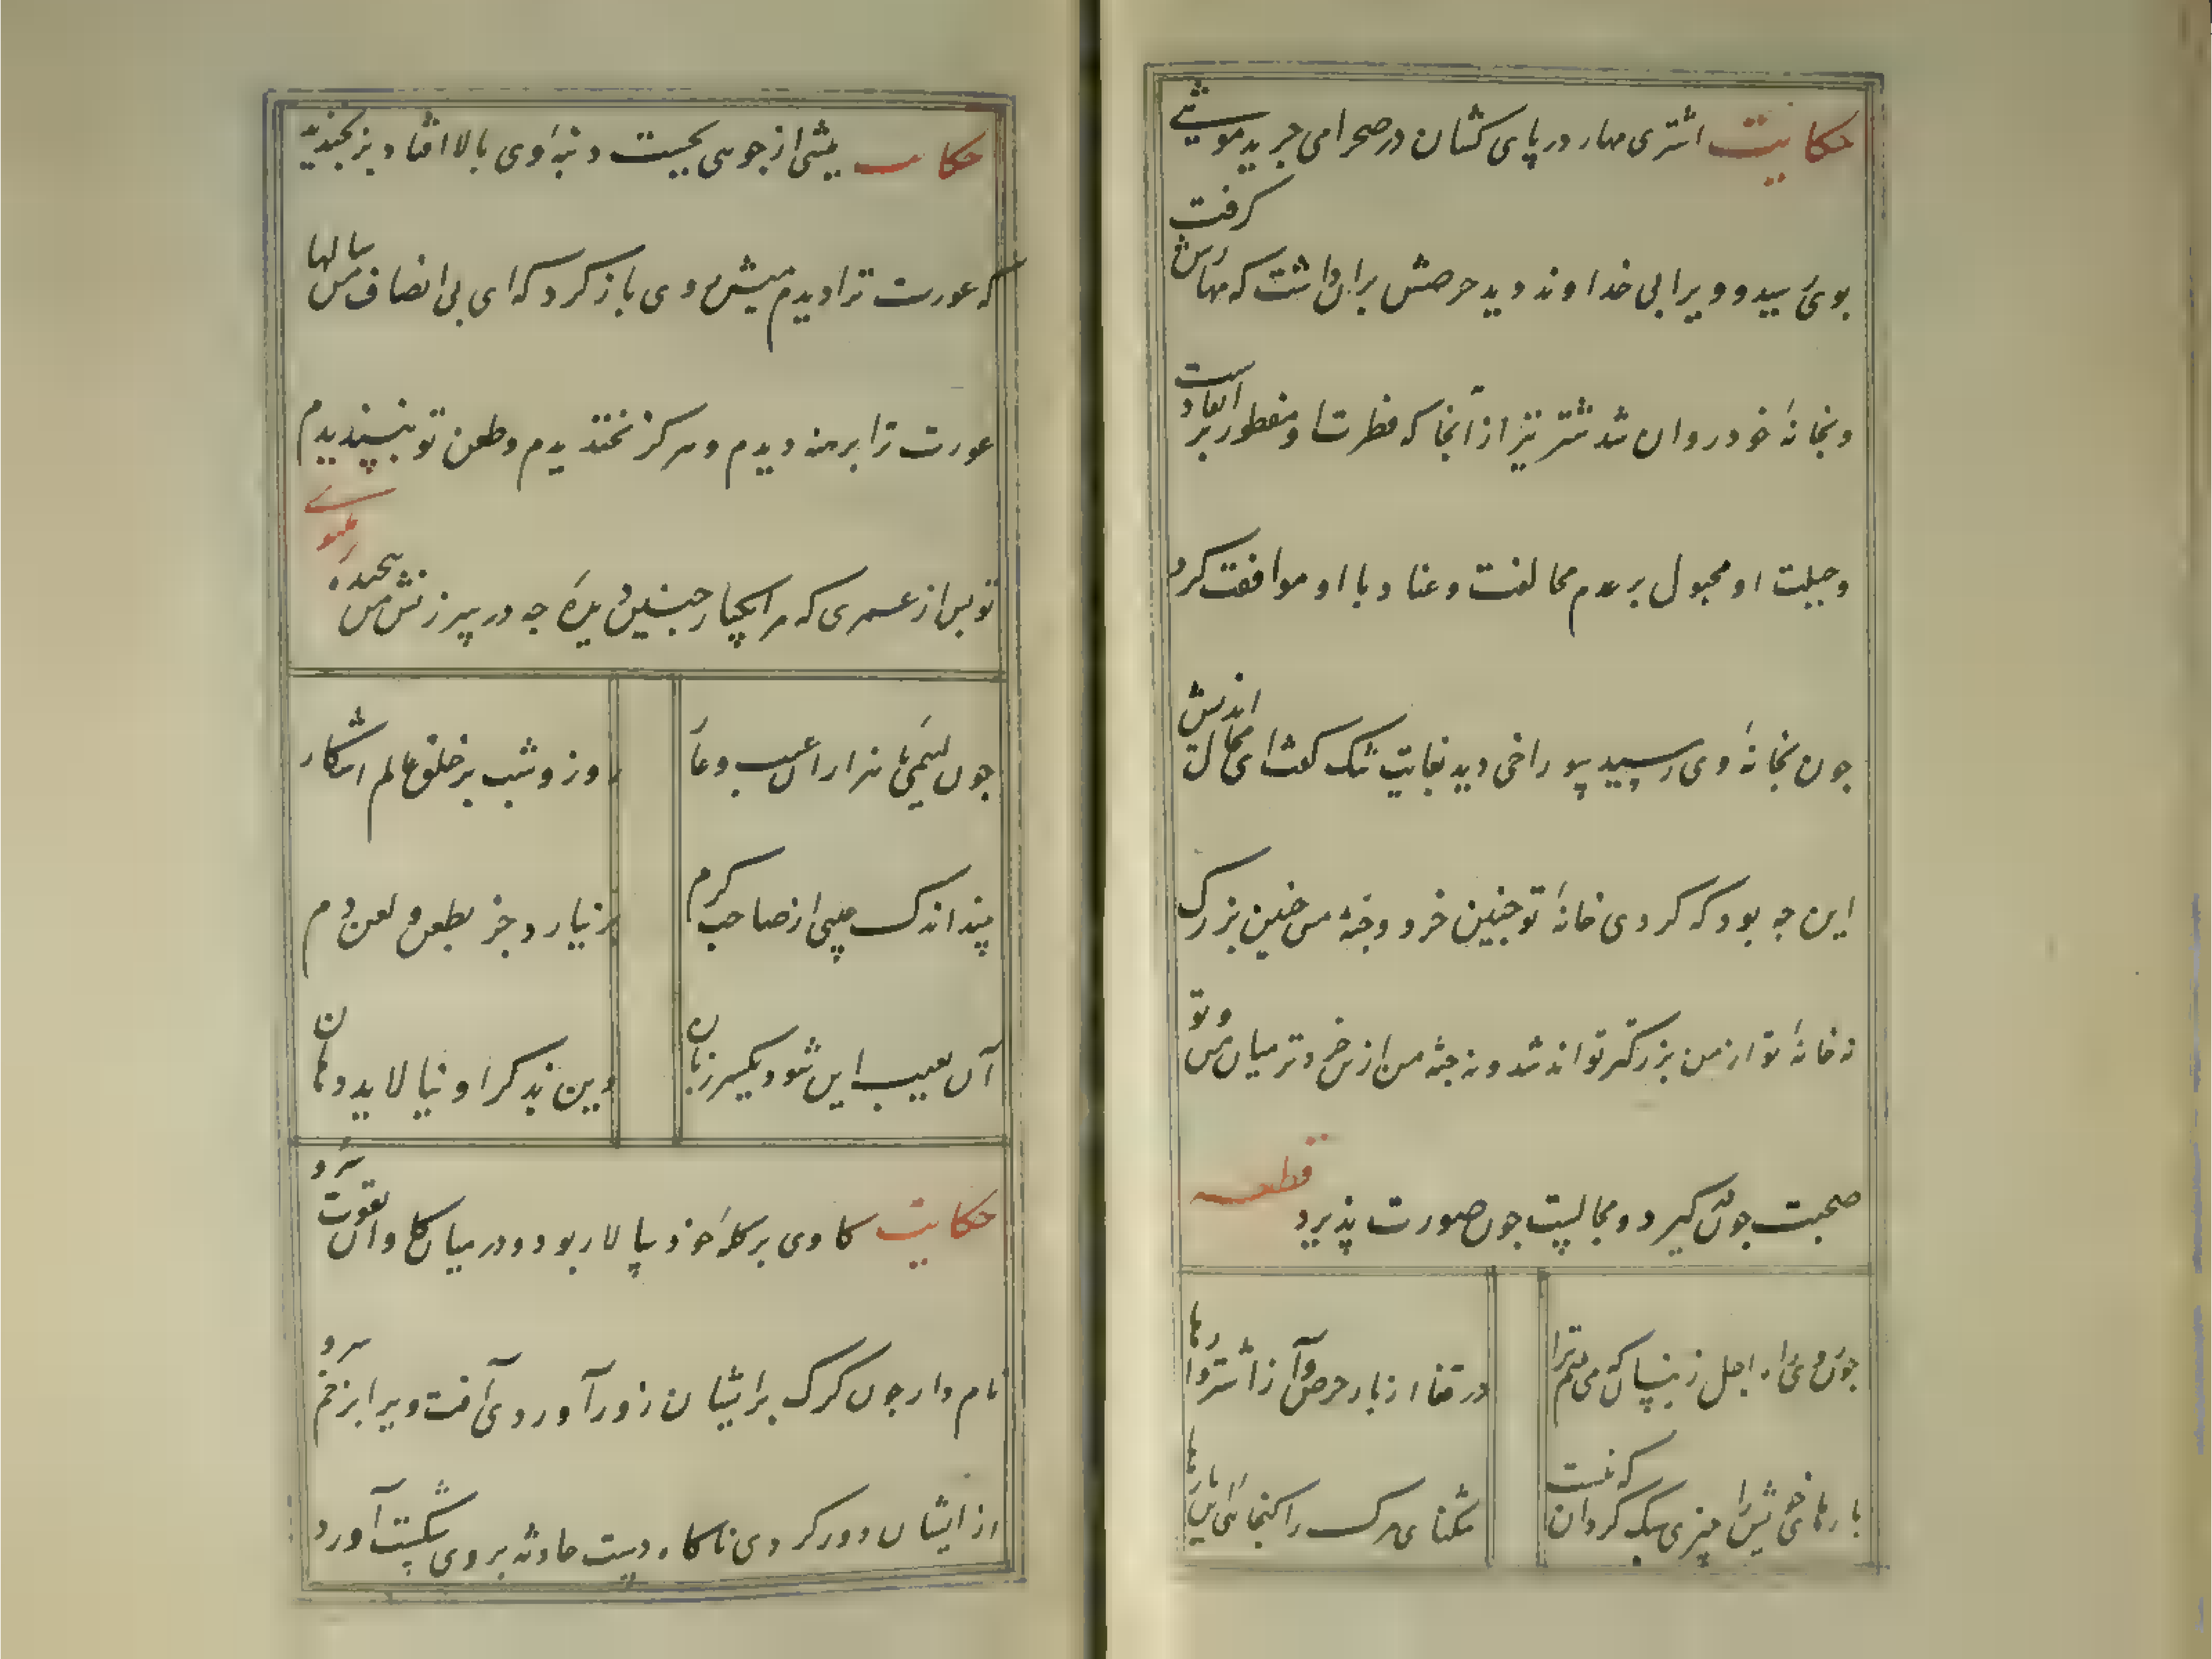 حکایت اشتری مهار در پای کشان در صحرا می چرید موشی
بوی رسید و ویرا بی خداوند دید حرصش بران داشت که مهارش گرفت
و بخانهٔ خود روان شد شتر نیز از آنجا که فطرت او مفطور بر انقیاد است
و جبلت او مجبول بر عدم مخالفت و عناد با او موافقت کرد
چون بخانهٔ وی رسید سوراخی دید بغایت تنک کفت ای محال اندیش
این چه بود که کردی خانهٔ تو چنین خرد و جثه من چنین بزرک
نه خانهٔ تو از من بزرکتر تواند شد و نه جثه من ازین خردتر میان من و تو
صحبت چون کیرد و مجالست چون صورت پذیرد قطعه
چون روی راه اجل زینسان که می بینم ترا
در قفا از بار حرص و آز اشتروارها
بارهای خویش را چیزی سبک کردان که نیست
تنکنای مرک را کنجای این بارها
حکایت میشی از جوی بجست دنبهٔ وی بالا افتاد بز بخندید
که عورت ترا دیدم میش روی باز کرد که ای بی انصاف من سالها
عورت ترا برهنه دیدم و هرکز نخندیدم و طعن تو نپسندیدم
تو پس از عمری که مرا یکبار چنین دیدهٔ چه در سرزنش من پیچیدهٔ مثنوی
چون لئیمی با هزاران عیب و عار
روز و شب بر خلق عالم آشکار
بیند اندک عیبی از صاحب کرم
برنیارد جز بطعن و لعن دم
آن بعیب این شود یکسر زبان
وین بذکر او نیالاید دهان
حکایت کاوی بر کلهٔ خود سالار بود و در میان کاوان بقوت سرو
نامدار چون کرک بر ایشان زور آوردی آفت ویرا بزخم سرو
از ایشان دور کردی ناکاه دست حادثه بر وی شکست آورد